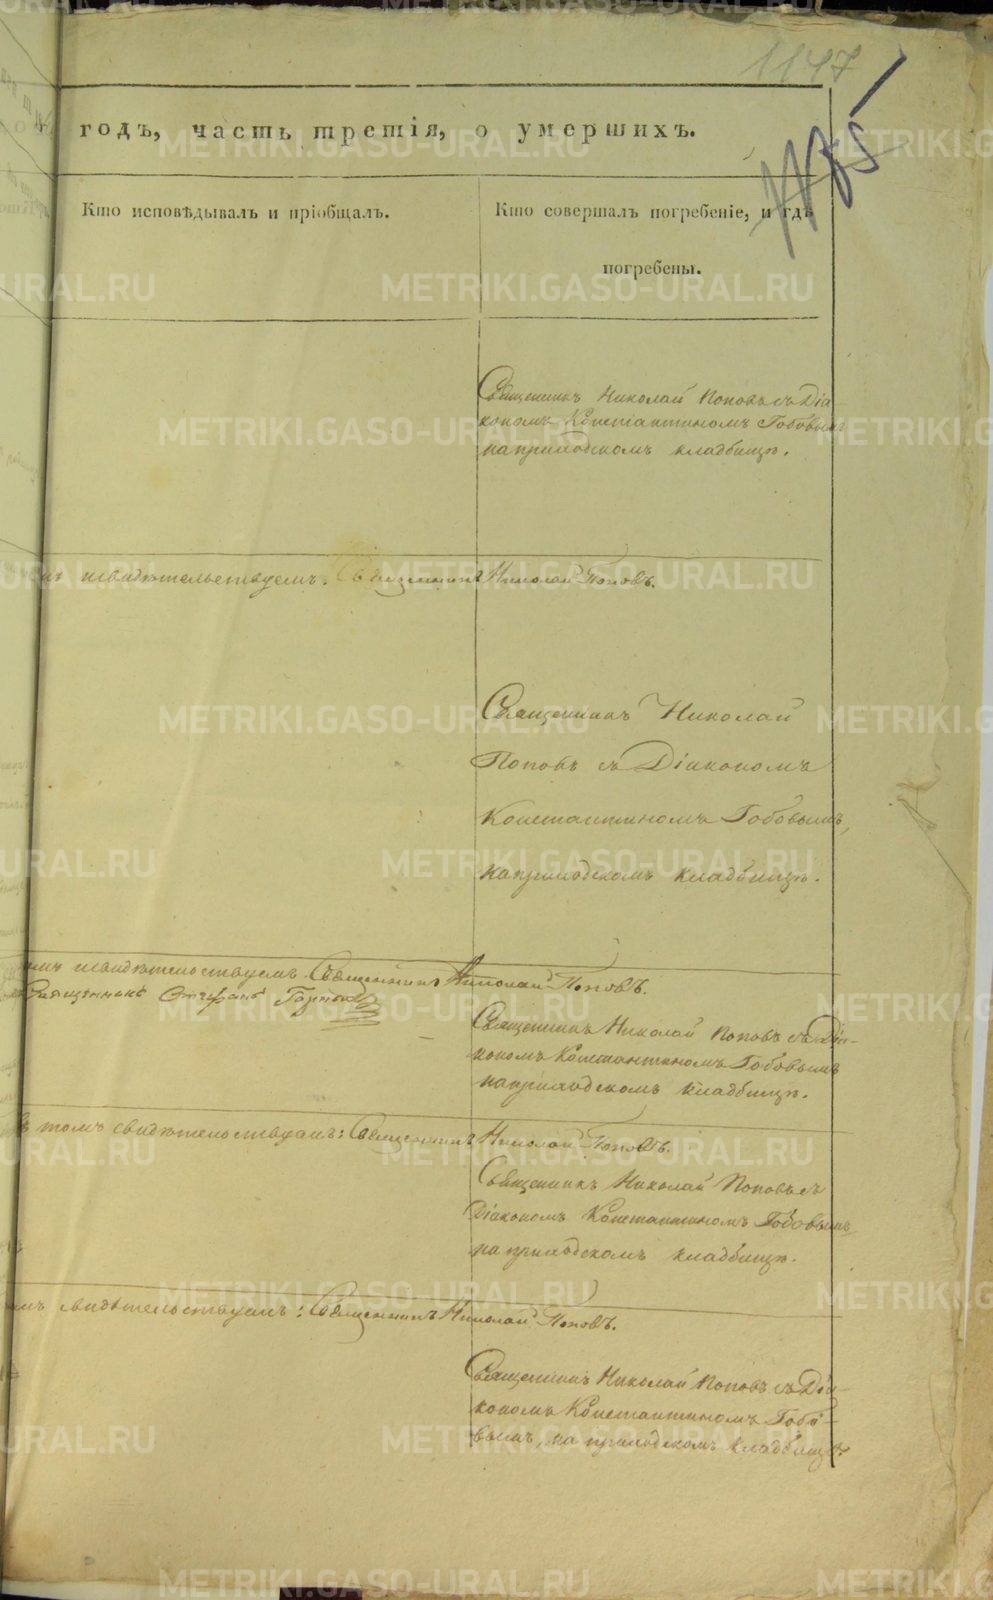 1147
1185
годъ, часть третія, о умершихъ.
Кто исповѣдывалъ и пріобщалъ.
Кто совершалъ погребеніе, и гдѣ
погребены.
Священникъ Николай Поповъ съ Діа-
кономъ Константиномъ Гобовымъ
на приходскомъ кладбищѣ.
свидѣтельствуемъ: Священникъ Николай Поповъ.
Священникъ Николай
Поповъ съ Діакономъ
Константиномъ Гобовымъ,
на приходскомъ кладбищѣ.
свидѣтельствуемъ Священникъ Николай Поповъ.
Священникъ Стефанъ
Священникъ Николай Поповъ съ Діа-
кономъ Константиномъ Гобовымъ
на приходскомъ кладбищѣ.
въ томъ свидѣтельствуемъ: Священникъ Николай Поповъ.
Священникъ Николай Поповъ съ
Діакономъ Константиномъ Гобовымъ
на приходскомъ кладбищѣ.
свидѣтельствуемъ: Священникъ Николай Поповъ.
Священникъ Николай Поповъ съ Діа-
кономъ Константиномъ Гобо-
вымъ, на приходскомъ кладбищѣ.
METRIKI.GASO-URAL.RU